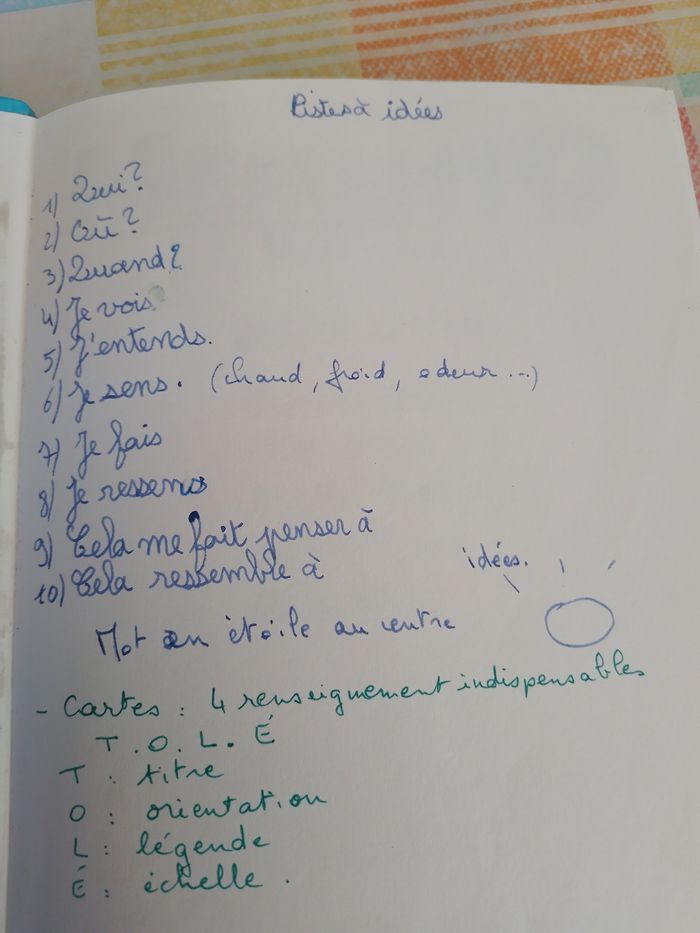 Pistes à idées
1) Qui?
2) Où?
3) Quand?
4) Je vois
5) J'entends.
6) Je sens. (chaud, froid, odeur...)
7) Je fais
8) Je ressens
9) Cela me fait penser à
10) Cela ressemble à
idées.
Mot en étoile au centre
- Cartes : 4 renseignement indispensables
T.O.L.É
T : titre
O : orientation
L : légende
É : échelle.